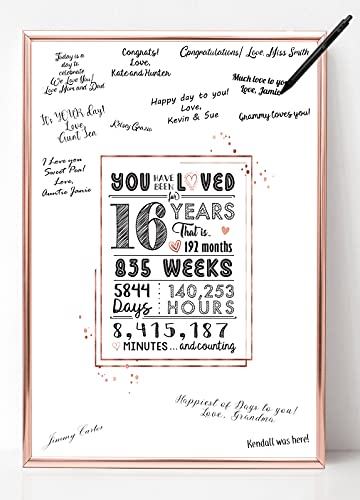 Today is a
day to
celebrate
We Love You!
Love Mom and Dad
Congrats!
Love,
Kate and Hunter
Congratulations! Love, Miss Smith
Much love to you
Love, Jamie
It's YOUR day!
Love,
Aunt Tea
Happy day to you!
Love,
Kevin & Sue
Grammy loves you!
I Love you
Sweet Pea!
Love,
Auntie Janie
YOU HAVE BEEN LOVED
for
16 YEARS
That is...
192 months
835 WEEKS
5844 Days
140,253 HOURS
8,415,187
MINUTES...and counting
Jimmy Carter
Happiest of Days to you!
Love, Grandma
Kendall was here!